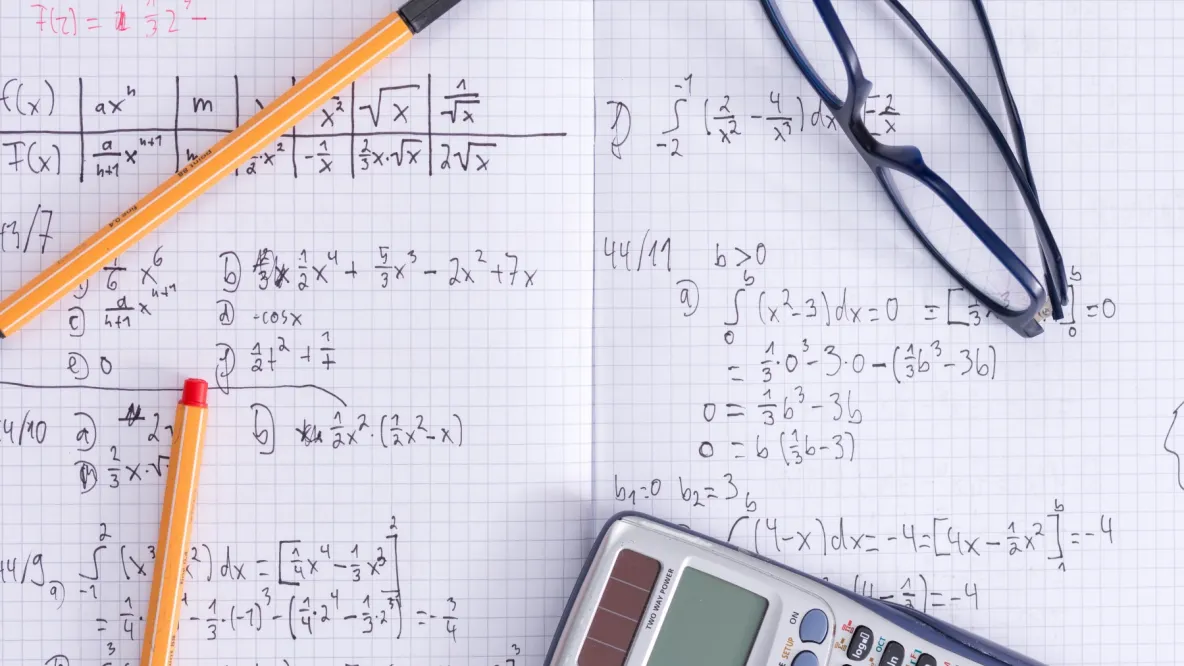 F(z) = 1/3 2³ -
f(x) | axⁿ | m | x² | √x | 1/√x
F(x) | a/(n+1) xⁿ⁺¹ | ½·x² | -1/x | 2/3 x·√x | 2√x
3/7
1/6 x⁶ b) 1/2 x⁴ + 5/3 x³ - 2x² + 7x
c) a/(n+1) xⁿ⁺¹ d) -cosx
e) 0 f) 1/2 t² + 1/t
4/10 a) 2 b) 1/2 x²·(1/2 x² - x)
2/3 x·√
44/9 a) ∫₋₁² (x³ x²) dx = [1/4 x⁴ - 1/3 x³]²
= 1/4 · - 1/3·(-1)³ - (1/4·2⁴ - 1/3·2³) = -3/4
f) ∫₋₂⁻¹ (2/x² - 4/x³) dx [-2/x
44/11 b > 0
a) ∫₀ᵇ (x²-3) dx = 0 = [1/3 x³ ]₀ᵇ = 0
= 1/3·0³ - 3·0 - (1/3 b³ - 3b)
0 = 1/3 b³ - 3b
0 = b (1/3 b - 3)
b₁=0 b₂=3
∫ᵇ (4-x) dx = -4 = [4x - 1/2 x²]₁ᵇ = -4
(4 - 1/2) = -4
TWO WAY POWER
ON
SETUP
logₐ□
ln
OCT